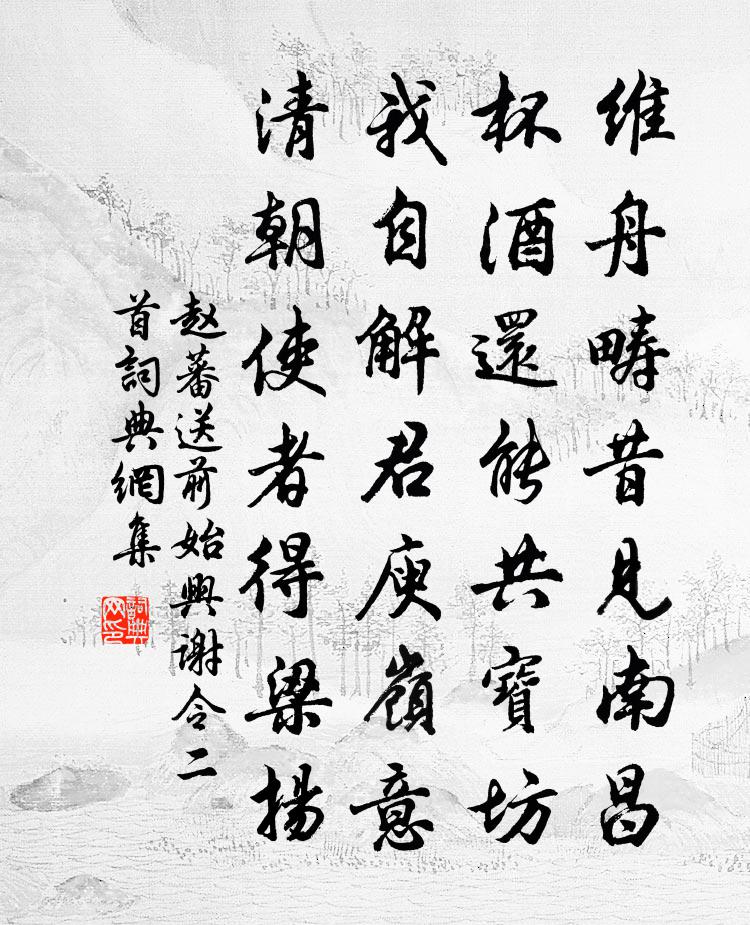 維舟疇昔見南昌
杯酒還能共寶坊
我自解君庾嶺意
清朝使者得梁揚
赵蕃送前始興谢令二
首詞典網集
詞典
网印